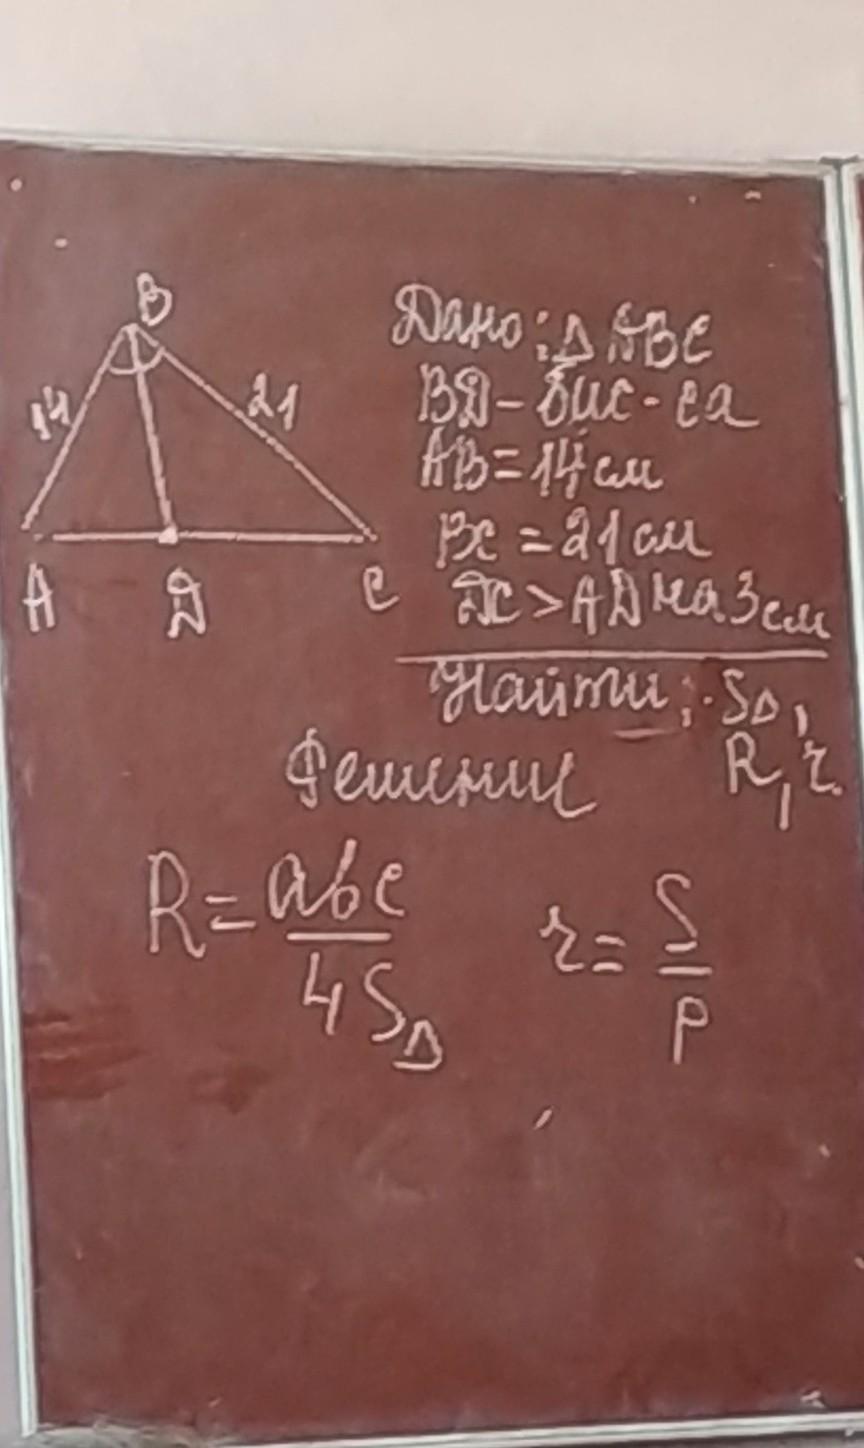 B
14
21
A
D
C
Дано: Δ ABC
BD - бис-са
AB = 14 см
BC = 21 см
DC > AD на 3 см
Найти: SΔ,
R, r.
Решение
R = abc / 4SΔ
r = S / p